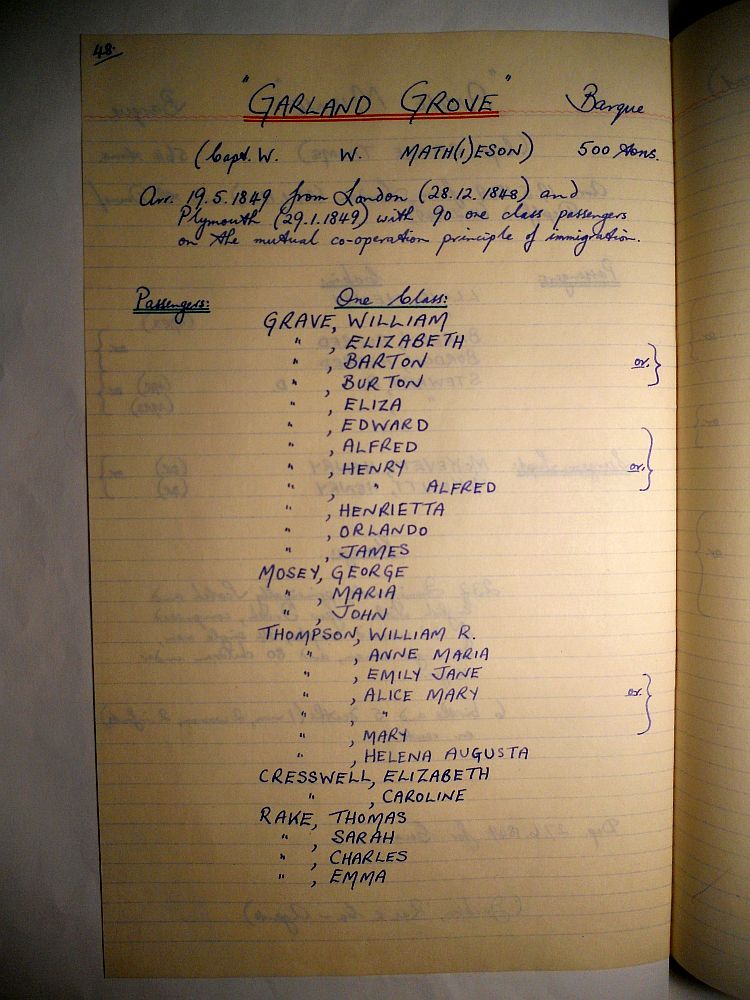 48.
"GARLAND GROVE" Barque
(Capt. W. W. MATH(I)ESON) 500 tons.
Arr. 19.5.1849 from London (28.12.1848) and
Plymouth (29.1.1849) with 90 one class passengers
on the mutual co-operation principle of immigration.
Passengers: One Class:
GRAVE, WILLIAM
" , ELIZABETH
" , BARTON or. }
" , BURTON
" , ELIZA
" , EDWARD
" , ALFRED
" , HENRY or. }
" , " ALFRED
" , HENRIETTA
" , ORLANDO
" , JAMES
MOSEY, GEORGE
" , MARIA
" , JOHN
THOMPSON, WILLIAM R.
" , ANNE MARIA
" , EMILY JANE
" , ALICE MARY or. }
" , "
" , MARY
" , HELENA AUGUSTA
CRESSWELL, ELIZABETH
" , CAROLINE
RAKE, THOMAS
" , SARAH
" , CHARLES
" , EMMA